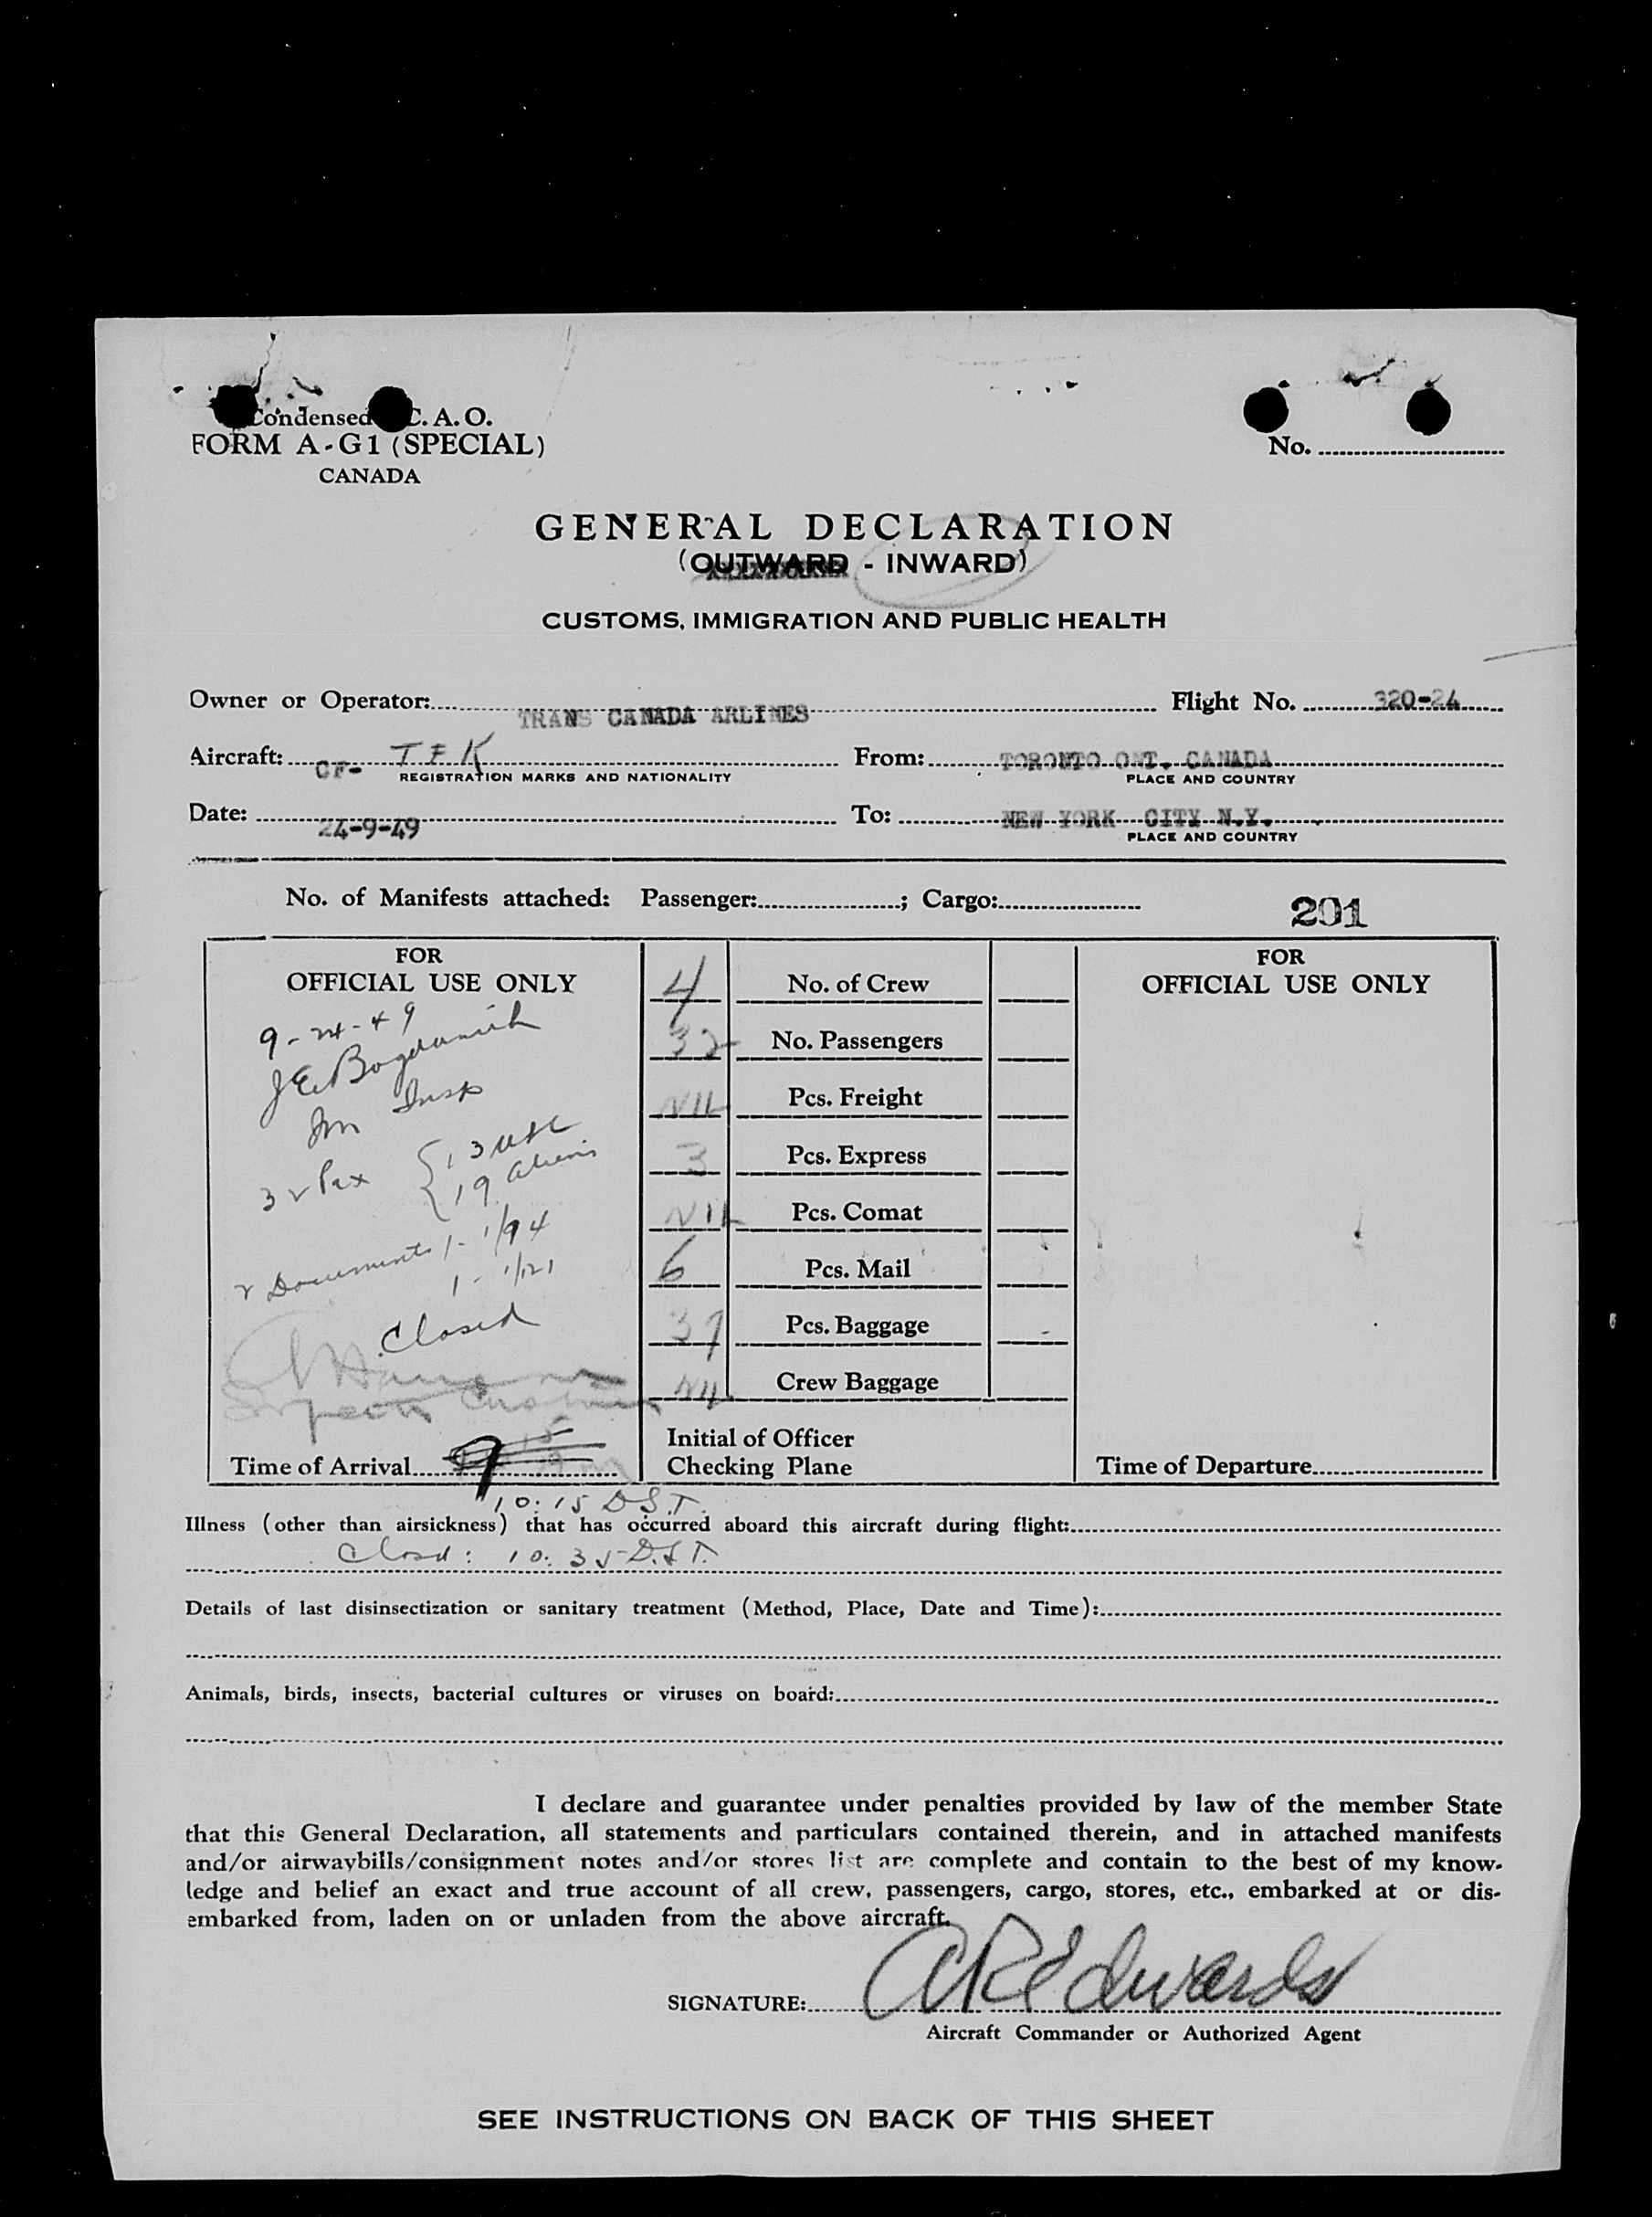 Condensed C. A. O.
FORM A-G1 (SPECIAL)
CANADA
No.
GENERAL DECLARATION
(OUTWARD - INWARD)
CUSTOMS, IMMIGRATION AND PUBLIC HEALTH
Owner or Operator: TRANS CANADA ARLINES Flight No. 320-24
Aircraft: CF- TFK From: TORONTO ONT. CANADA
REGISTRATION MARKS AND NATIONALITY PLACE AND COUNTRY
Date: 24-9-49 To: NEW YORK CITY N.Y.
PLACE AND COUNTRY
No. of Manifests attached: Passenger: ; Cargo: 201
FOR
OFFICIAL USE ONLY
9-24-49
Im Insp
32 Pax { 13 USC
19 aliens
2 Documents 1 - 1/94
1 - 1/121
Closed
Time of Arrival
10:15 D.S.T.
4 No. of Crew
32 No. Passengers
NIL Pcs. Freight
3 Pcs. Express
NIL Pcs. Comat
6 Pcs. Mail
37 Pcs. Baggage
NIL Crew Baggage
Initial of Officer
Checking Plane
FOR
OFFICIAL USE ONLY
Time of Departure
Illness (other than airsickness) that has occurred aboard this aircraft during flight:
Closd: 10:35 D.S.T.
Details of last disinsectization or sanitary treatment (Method, Place, Date and Time):
Animals, birds, insects, bacterial cultures or viruses on board:
I declare and guarantee under penalties provided by law of the member State
that this General Declaration, all statements and particulars contained therein, and in attached manifests
and/or airwaybills/consignment notes and/or stores list are complete and contain to the best of my know-
ledge and belief an exact and true account of all crew, passengers, cargo, stores, etc., embarked at or dis-
embarked from, laden on or unladen from the above aircraft.
SIGNATURE: AR Edwards
Aircraft Commander or Authorized Agent
SEE INSTRUCTIONS ON BACK OF THIS SHEET